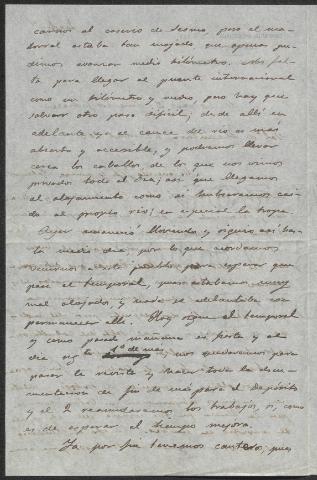 camos al caserio de Sesma, pero el ma-
torral estaba tan mojado que apenas pu-
dimos avanzar medio kilómetro. Nos fal-
ta para llegar al puente internacional
como un kilómetro y medio, pero hay que
salvar otro paso dificil; desde allí en
adelante ya el cauce del rio es mas
abierto y accesible, y podremos llevar
cerca los caballos de los que nos vimos
privados todo el dia; asi que llegamos
al alojamiento como si hubieramos cai-
do al propio rio; en especial la tropa.
Ayer amaneció lloviendo y siguio asi has-
ta medio dia, por lo que acordamos
venirnos a este pueblo a esperar que
pase el temporal, pues estabamos muy
mal alojados, y nada se adelantaba con
permanecer alli. Hoy sigue el temporal
y como pasado mañana es fiesta y al
dia sig.te 1.º de mes, nos quedaremos para
pasar la revista y hacer toda la docu-
mentacion de fin de mes para el Depósito
y el 2 reanudaremos los trabajos, si, como
es de esperar el tiempo mejora.
Ya por fin tenemos canteros, pues